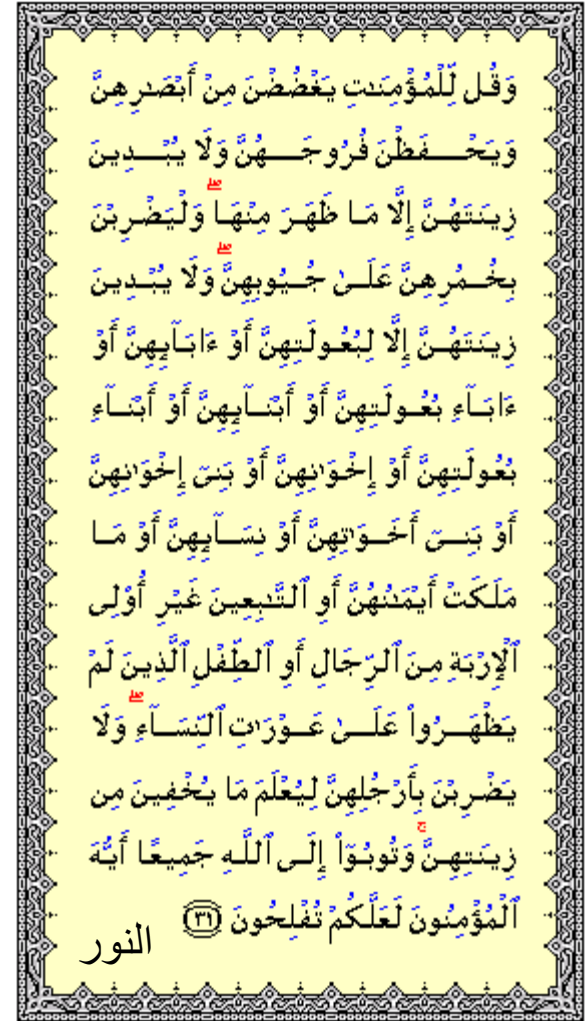 وَقُل لِّلْمُؤْمِنَـٰتِ يَغْضُضْنَ مِنْ أَبْصَـٰرِهِنَّ
وَيَحْـــفَظْنَ فُرُوجَــــهُنَّ وَلَا يُبْـــدِينَ
زِينَتَهُــنَّ إِلَّا مَـا ظَهَـرَ مِنْهَـا ۖ وَلْيَضْرِبْنَ
بِخُــمُرِهِنَّ عَلَــىٰ جُــيُوبِهِنَّ ۖ وَلَا يُبْـدِينَ
زِينَتَهُــنَّ إِلَّا لِبُعُـولَتِهِنَّ أَوْ ءَابَـآئِهِنَّ أَوْ
ءَابَــآءِ بُعُـولَتِهِنَّ أَوْ أَبْنَـآئِهِنَّ أَوْ أَبْنَــآءِ
بُعُولَتِهِنَّ أَوْ إِخْوَٰنِهِنَّ أَوْ بَنِىٓ إِخْوَٰنِهِنَّ
أَوْ بَنِــىٓ أَخَــوَٰتِهِنَّ أَوْ نِسَــآئِهِنَّ أَوْ مَــا
مَلَكَتْ أَيْمَـٰنُهُنَّ أَوِ ٱلتَّـٰبِعِينَ غَيْرِ أُو۟لِى
ٱلْإِرْبَةِ مِـنَ ٱلرِّجَالِ أَوِ ٱلطِّفْلِ ٱلَّذِينَ لَمْ
يَظْهَــرُوا۟ عَلَــىٰ عَــوْرَٰتِ ٱلنِّسَــآءِ ۖ وَلَا
يَضْـرِبْنَ بِأَرْجُلِهِنَّ لِيُعْلَمَ مَا يُخْفِينَ مِن
زِينَتِهِـنَّ ۚ وَتُوبُـوٓا۟ إِلَـى ٱللَّـهِ جَمِيعًـا أَيُّهَ
ٱلْمُؤْمِنُونَ لَعَلَّكُمْ تُفْلِحُونَ ٣١
النور